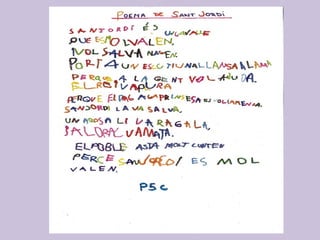 POEMA DE SANT JORDI
SANTORDI ÉS UNCAVALE
QUE ESMOLVALEN.
IVOLSALVA NAGEN.
PORTA UN ESCUTIUNALLANSAALAMA
PERQUE A LA GENT VOL AJUDA.
ELREIVAPURA
PERQUE EL DRAC AGAPRINSESA ES VOLIAMENGA.
SANJORDI LA VA SALVA,
UN AROSA LI VA RAGALA,
I ALDRAC VAMATA.
ELPOBLE ASTA MOLT CUNTEN
PERCE SANJORDI ES MOL
VALEN.
P5C